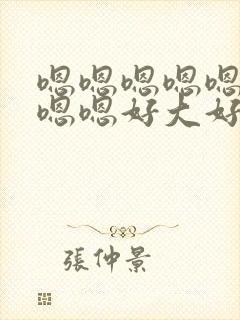 嗯嗯嗯嗯嗯
嗯嗯好大好
張仲景